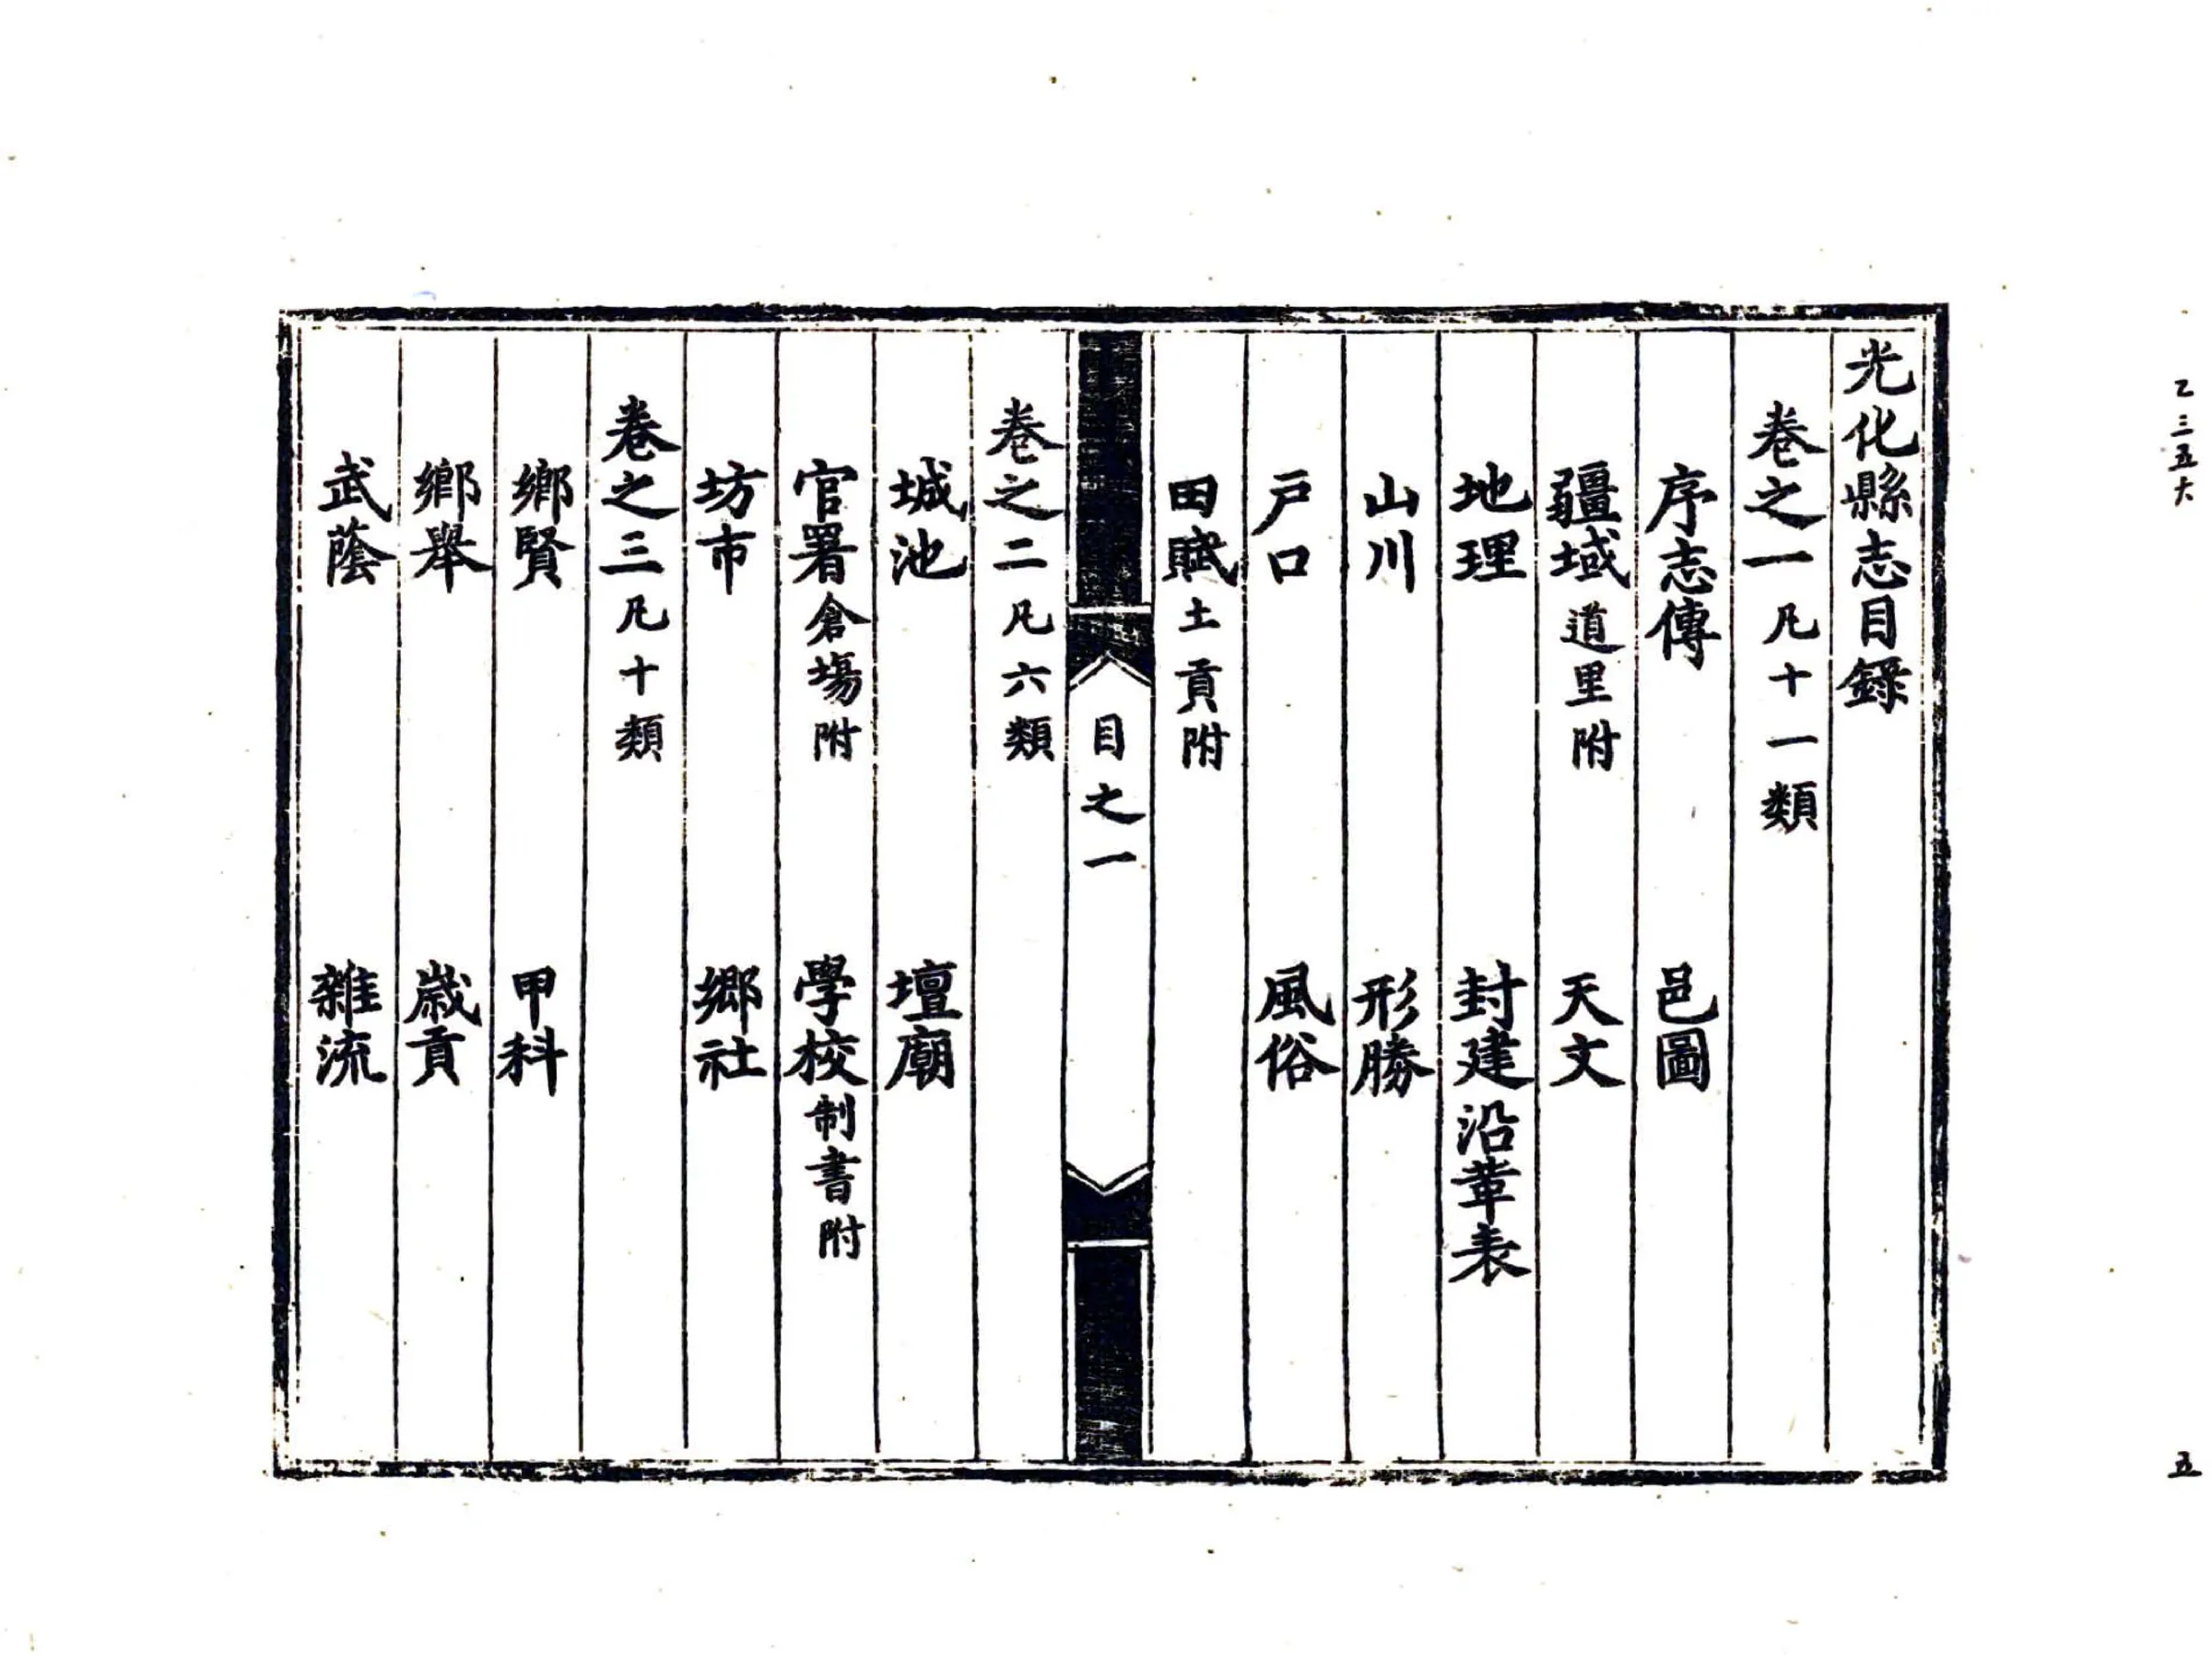 光化縣志目錄
卷之一凡十一類
序志傳 邑圖
疆域道里附 天文
地理 封建沿革表
山川 形勝
戶口 風俗
田賦土貢附
目之一
卷之二凡六類
城池 壇廟
官署倉場附 學校制書附
坊市 鄉社
卷之三凡十類
鄉賢 甲科
鄉舉 歲貢
武蔭 雜流
乙三五六
五